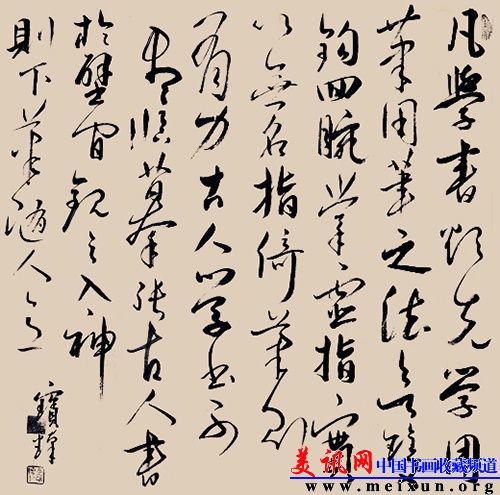 凡學書欲先學用
筆用筆之法欲雙
鉤回腕掌虛指實
以無名指倚筆則
有力古人學書不
盡臨摹張古人書
於壁間觀之入神
則下筆隨人意
寶
美讯网 中国书画收藏频道
www.meixun.org